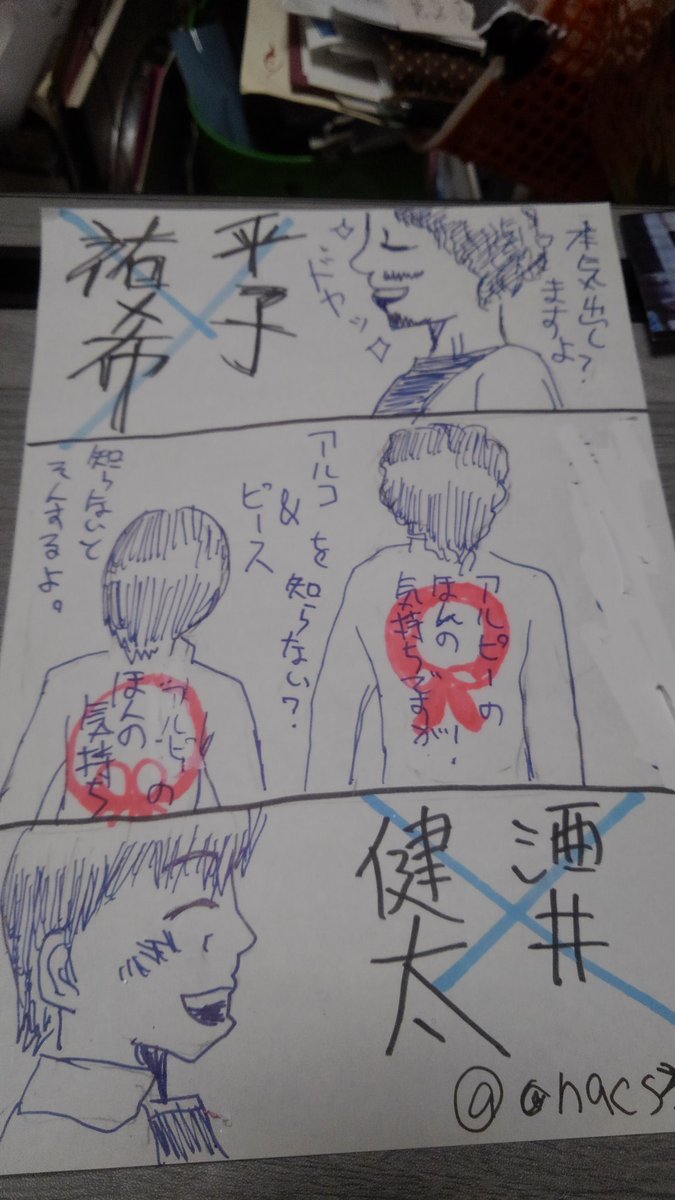 本気出し?
ますよ
ドヤッ
平子
祐希
アルピーの
ほんの
気持ちですが!
アルコ&ピース
を知らない?
知らないと
そんするよ。
アルピーの
ほんの
気持ち
酒井
健太